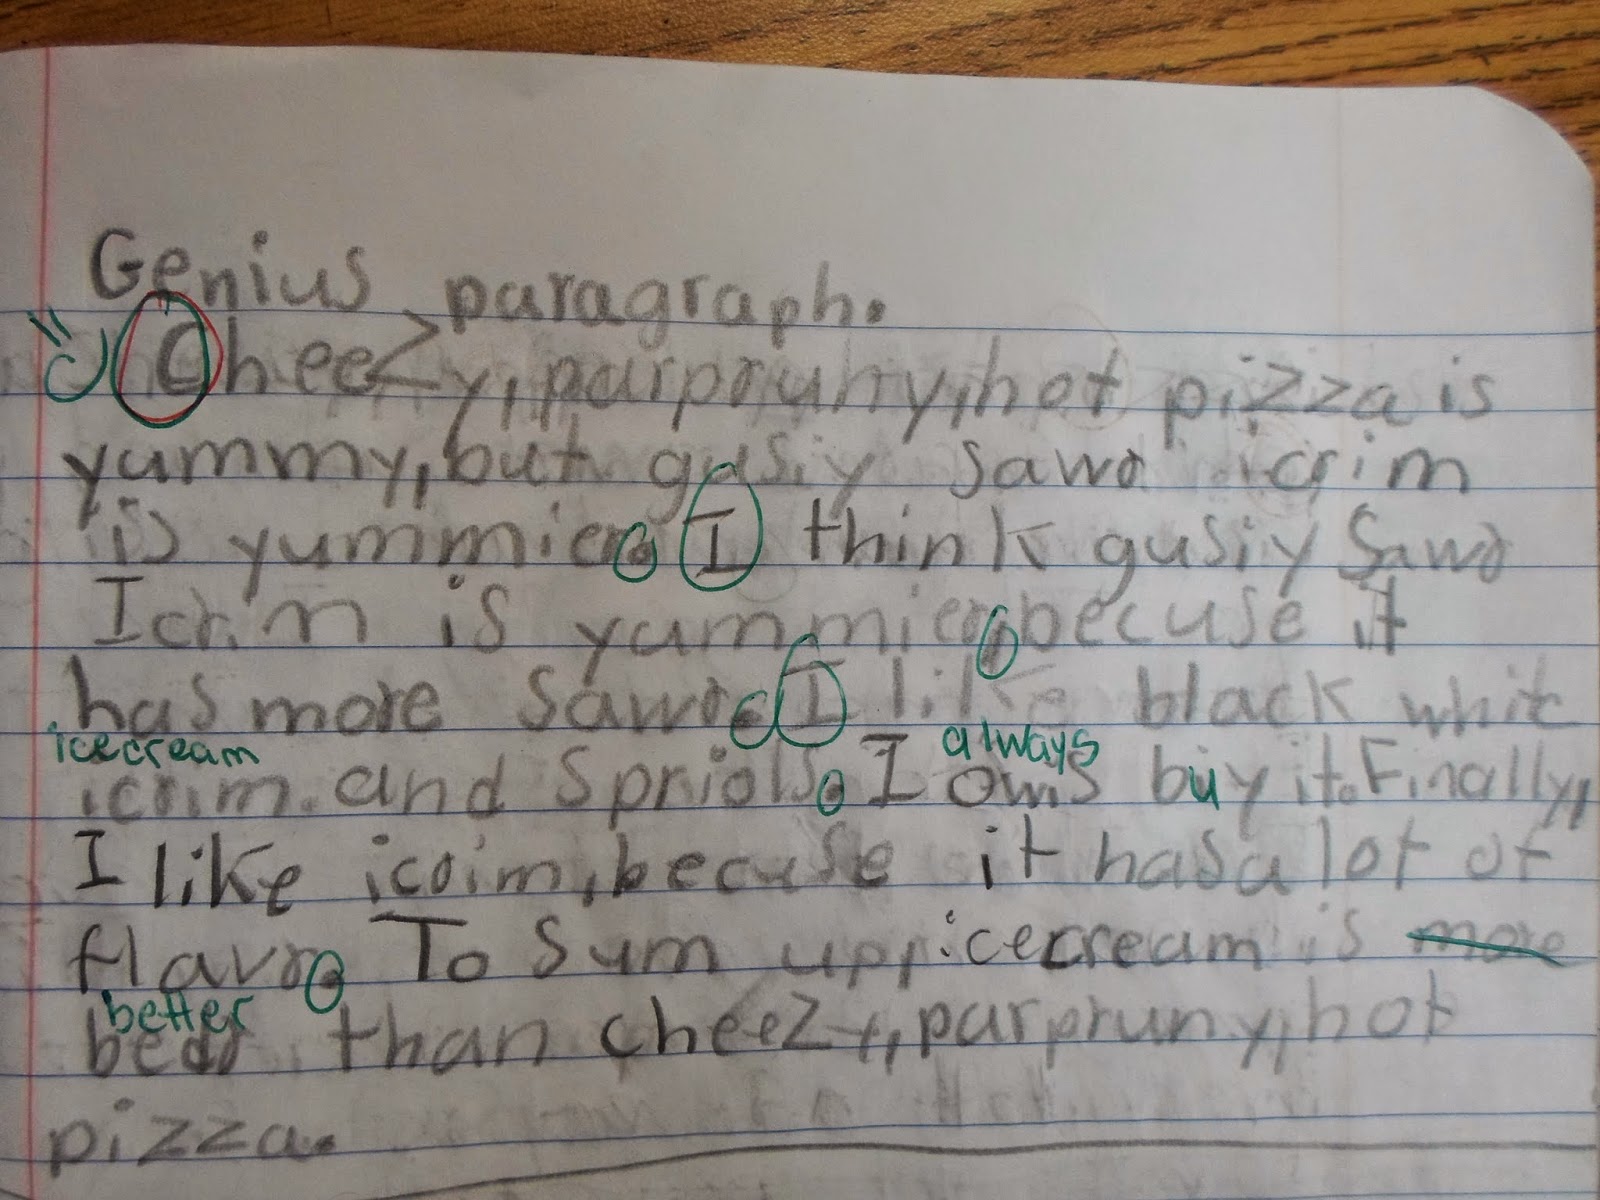 Genius paragraph.
CheeZy, parpruny, hot pizza is
yummy, but gusiy sawr icrim
is yummier. I think gusiy Sawr
Icrim is yummier, becuse it
has more sawr. I like black whit
icecream always
icrim. and Spriols. I ows buy it. Finally,
I like icrim, becuse it has a lot of
flavr. To Sum upp, icecream is more
better
bedr than cheeZy, parpruny, hot
pizza.